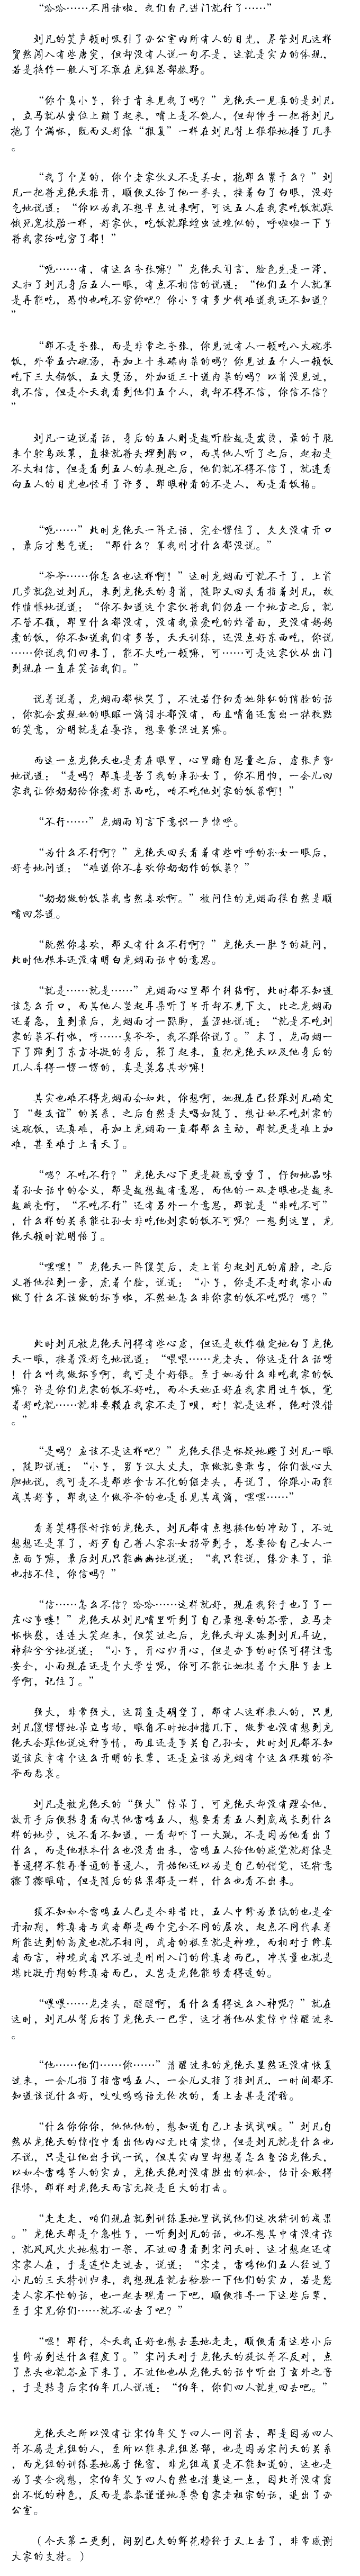 “哈哈……不用请啦，我们自己进门就行了……”
刘凡的笑声顿时吸引了办公室内所有人的目光，尽管刘凡这样
贸然闯入有些唐突，但却没有人说一句不是，这就是实力的体现，
若是换作一般人可不敢在龙组总部撒野。
“你个臭小子，终于肯来见我了吗？”龙绝天一见真的是刘凡
，立马就从坐位上蹦了起来，嘴上是不饶人，但却伸手一把将刘凡
抱了个满怀，既而又好像“报复”一样在刘凡背上狠狠地捶了几拳
。
“我了个老的，你个老家伙又不是美女，抱那么紧干么？”刘
凡一把将龙绝天推开，顺做又给了他一拳头，接着白了白眼，没好
气地说道：“你以为我不想早点过来啊，可这五人在我家吃饭就跟
饿死鬼投胎一样，好家伙，吃饭就跟蝗虫过境似的，呼啦啦一下子
将我家给吃穷了都！”
“呃……有，有这么夸张嘛？”龙绝天闻言，脸色先是一滞，
又扫了刘凡身后五人一眼，有点不相信的说道：“他们五个人就算
是再能吃，恐怕也吃不穷你吧？你小子有多少钱难道我还不知道？
”
“那不是夸张，而是非常之夸张，你见过有人一顿吃八大碗米
饭，外带五六碗汤，再加上十来碟肉菜的吗？你见过五个人一顿饭
吃下三大锅饭，五大煲汤，外加近三十道肉菜的吗？以前没见过，
我不信，但是今天我看到他们五个人，我却不得不信，你信不信？
”
刘凡一边说着话，身后的五人则是越听脸越是发烫，最的干脆
来个鸵鸟政策，直接就将头埋到胸口，而其他人听了之后，起初是
不大相信，但是看到五人的表现之后，他们就不得不信了，就连看
向五人的目光也怪异了许多，那眼神看的不是人，而是看饭桶。
“呃……”此时龙绝天一阵无语，完全愣住了，久久没有开口
，最后才憋气道：“那什么？算我刚才什么都没说。”
“爷爷……你怎么也这样啊！”这时龙烟雨可就不干了，上前
几步就绕过刘凡，来到龙绝天的身前，随即又回头看指着刘凡，故
作愤恨地说道：“你不知道这个家伙将我们扔在一个地方之后，就
不管不顾，那里什么都没有，没有我最爱吃的炸酱面，更没有妈妈
煮的饭，你不知道我们有多苦，天天训练，还没点好东西吃，你说
……你说我们回来了，能不大吃一顿嘛，可……可是这家伙从出门
到现在一直在笑话我们。”
说着说着，龙烟雨都快哭了，不过若仔细看她绯红的俏脸的话
，你就会发现她的眼眶一滴泪水都没有，而且嘴角还露出一抹狡黠
的笑意，分明就是在耍诈，想要蒙混过关嘛。
而这一点龙绝天也是看在眼里，心里暗自思量之后，虚张声势
地说道：“是吗？那真是苦了我的乖孙女了，你不用怕，一会儿回
家我让你奶奶给你煮好东西吃，咱不吃他刘家的饭菜啊！”
“不行……”龙烟雨闻言下意识一声惊呼。
“为什么不行啊？”龙绝天回头看着有些咋呼的孙女一眼后，
好奇地问道：“难道你不喜欢你奶奶作的饭菜？”
“奶奶做的饭菜我当然喜欢啊。”被问住的龙烟雨很自然是顺
嘴回答道。
“既然你喜欢，那又有什么不行啊？”龙绝天一肚子的疑问，
此时他根本还没有明白龙烟雨话中的意思。
“就是……就是……”龙烟雨心里那个纠结啊，此时都不知道
该怎么开口，而其他人竖起耳朵听了半开却不见下文，比之龙烟雨
还着急，直到最后，龙烟雨才一跺脚，羞涩地说道：“就是不吃刘
家的菜不行啦，哼……臭爷爷，我不跟你说了。”末了，龙雨烟一
下子蹿到了东方冰凝的身后，躲了起来，直把龙绝天以及他身后的
几人弄得一愣一愣的，真是莫名其妙嘛！
其实也难不得龙烟雨会如此，你想啊，她现在已经跟刘凡确定
了“超友谊”的关系，之后自然是夫唱如随了，想让她不吃刘家的
这碗饭，还真难，再加上龙烟雨一直都那么主动，那就更是难上加
难，甚至难于上青天了。
“嗯？不吃不行？”龙绝天心下更是疑惑重重了，仔细地品味
着孙女话中的含义，那是越想越有意思，而他的一双老眼也是越来
越贼亮啊，“不吃不行”还有另外一个意思，那就是“非吃不可”
，什么样的关系能让孙女非吃他刘家的饭不可呢？一想到这里，龙绝
天顿时就明悟了。
“嘿嘿！”龙绝天一阵傻笑后，走上前勾起刘凡的肩膀，之后
又将他拉到一旁，虎着个脸，说道：“小子，你是不是对我家小雨
做了什么不该做的坏事啦，不然她怎么非你家的饭不吃呢？嗯？”
此时刘凡被龙绝天问得有些心虚，但还是故作镇定地白了龙绝
天一眼，接着没好气地说道：“喂喂……龙老头，你这是什么话呀
！什么叫我做坏事啊，我可是个好银。至于她为什么非吃我家的饭
嘛？许是你们龙家的饭不好吃，而今天她正好在我家用过午饭，觉
着好吃就……就非要赖在我家不走了呗，对！就是这样，绝对没错
。”
“是吗？应该不是这样吧？”龙绝天很是怀疑地瞪了刘凡一眼
，随即说道：“小子，男子汉大丈夫，敢做就要敢当，你们放心大
胆地说，我可是不是那些食古不化的倔老头，再说了，你跟小雨能
成其好事，那我这个做爷爷的也是乐见其成滴，嘿嘿……”
看着笑得很奸诈的龙绝天，刘凡都有点想揍他的冲动了，不过
想想还是算了，好歹自己将人家孙女拐带到手，总要给自己女人一
点面子嘛，最后刘凡只能幽幽地说道：“我只能说，缘分来了，谁
也挡不住，你信吗？”
“信……怎么不信？哈哈……这样就好，现在我终于也了了一
庄心事喽！”龙绝天从刘凡嘴里听到了自己最想要的答案，立马老
怀快慰，连连大笑起来，但笑过之后，龙绝天却又凑到刘凡耳边，
神秘兮兮地说道：“小子，开心归开心，但是办事的时候可得注意
安全，小雨现在还是个大学生呢，你可不能让她挺着个大肚子去上
学啊，记住了。”
强大，非常强大，这简直是碉堡了，那有人这样教人的，只见
刘凡傻愣愣地呆立当场，眼角不时地抽搐几下，做梦也没有想到龙
绝天会跟他说这种事情，而且还是事关自己孙女，此时刘凡都不知
道该庆幸有个这么开明的长辈，还是应该为龙烟有个这么极强的爷
爷而悲哀。
刘凡是被龙绝天的“强大”惊呆了，可龙绝天却没有理会他，
放开手后做转身看向其他雷鸣五人，想要看看五人到底成长到什么
样的地步，这不看不知道，一看却吓了一大跳，不是因为他看出了
什么，而是他根本什么也没看出来，雷鸣五人给他的感觉就好像是
普通得不能再普通的普通人，开始他还以为是自己的错觉，还特意
擦了擦眼睛，但是随后的结果都是一样，什么也看不出来。
须不知如今雷鸣五人已是今非昔比，五人中修为最低的也是金
丹初期，修真者与武者那是两个完全不同的层次，起点不同代表着
所能达到的高度也就不相同，武者的极至就是神境，而相对于修真
者而言，神境武者只不过是刚刚入门的修真者而已，冲其量也就是
堪比凝丹期的修真者而已，又岂是龙绝能够看得透的。
“喂喂……龙老头，醒醒啊，看什么看得这么入神呢？”就在
这时，刘凡从背后拍了龙绝天一巴掌，这才将他从震惊中惊醒过来
。
“他……他们……你……”清醒过来的龙绝天显然还没有恢复
过来，一会儿指了指雷鸣五人，一会儿又指了指刘凡，一时间都不
知道该说什么好，吱吱呜呜语无伦次的，看上去甚是滑稽。
“什么你你你，他他他的，想知道自己上去试试呗。”刘凡自
然从龙绝天的惊惶中看出他内心无比有震惊，但是刘凡就是什么也
不说，只是让他出手试一试，但其实内里却想着怎么整治龙绝天，
以如今雷鸣等人的实力，龙绝天绝对没有胜出的机会，估计会败得
很惨，那样对龙绝天而言无疑是巨大的打击。
“走走走，咱们现在就到训练基地里试试他们这次特训的成果
。”龙绝天那是个急性子，一听到刘凡的话，也不想其中有没有诈
，就风风火火地想打一架，不过回身看到宋问天时，这才想起还有
宋家人在，于是连忙走过去，说道：“宋老，雷鸣他们五人经过了
小凡的三天特训归来，我想现在就去检验一下他们的实力，若是您
老人家不忙的话，也一起去观看一下吧，顺做指导一下这些后辈，
至于宋兄你们……就不必去了吧？”
“嗯！那行，今天我正好也想去基地走走，顺做看看这些小后
生修为到达什么程度了。”宋问天对于龙绝天的提议并不反对，点
了点头也就答应下来了，不过他也从龙绝天的话中听出了言外之音
，于是转身后宋伯年几人说道：“伯年，你们四人就先回去吧。”
龙绝天之所以没有让宋伯年父子四人一同前去，那是因为四人
并不属是龙组的人，至所以能来龙组总部，也是因为宋问天的关系
，而龙组的训练基地属于绝密，非龙组成员是不能知道的，这也是
为了安全我想，宋伯年父子四人自然也清楚这一点，因此并没有露
出不悦的神色，反而是恭恭谨谨地尊崇自家老祖宗的话，退出了办
公室。
（今天第二更到，阔别已久的鲜花榜终于又上去了，非常感谢
大家的支持。）